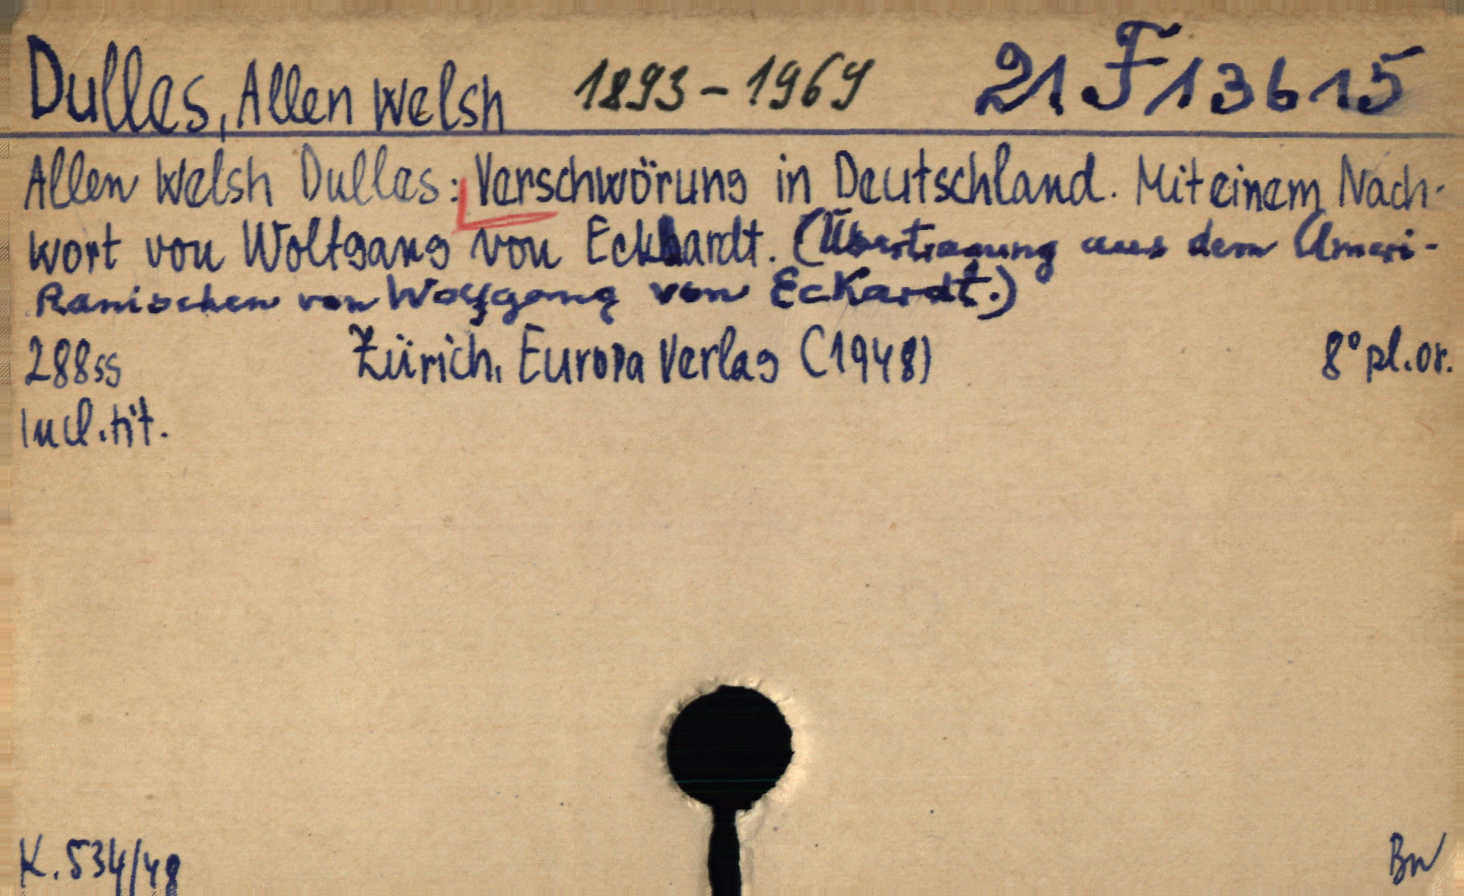 Dulles, Allen Welsh 1893-1969 21 F 13615
Allen Welsh Dulles: Verschwörung in Deutschland. Mit einem Nach-
wort von Wolfgang von Eckhardt. (Übertragung aus dem Ameri-
kanischen von Wolfgang von Eckardt.)
288ss Zürich, Europa Verlag (1948) 8° pl.or.
Incl.tit.
K.534/48 BW